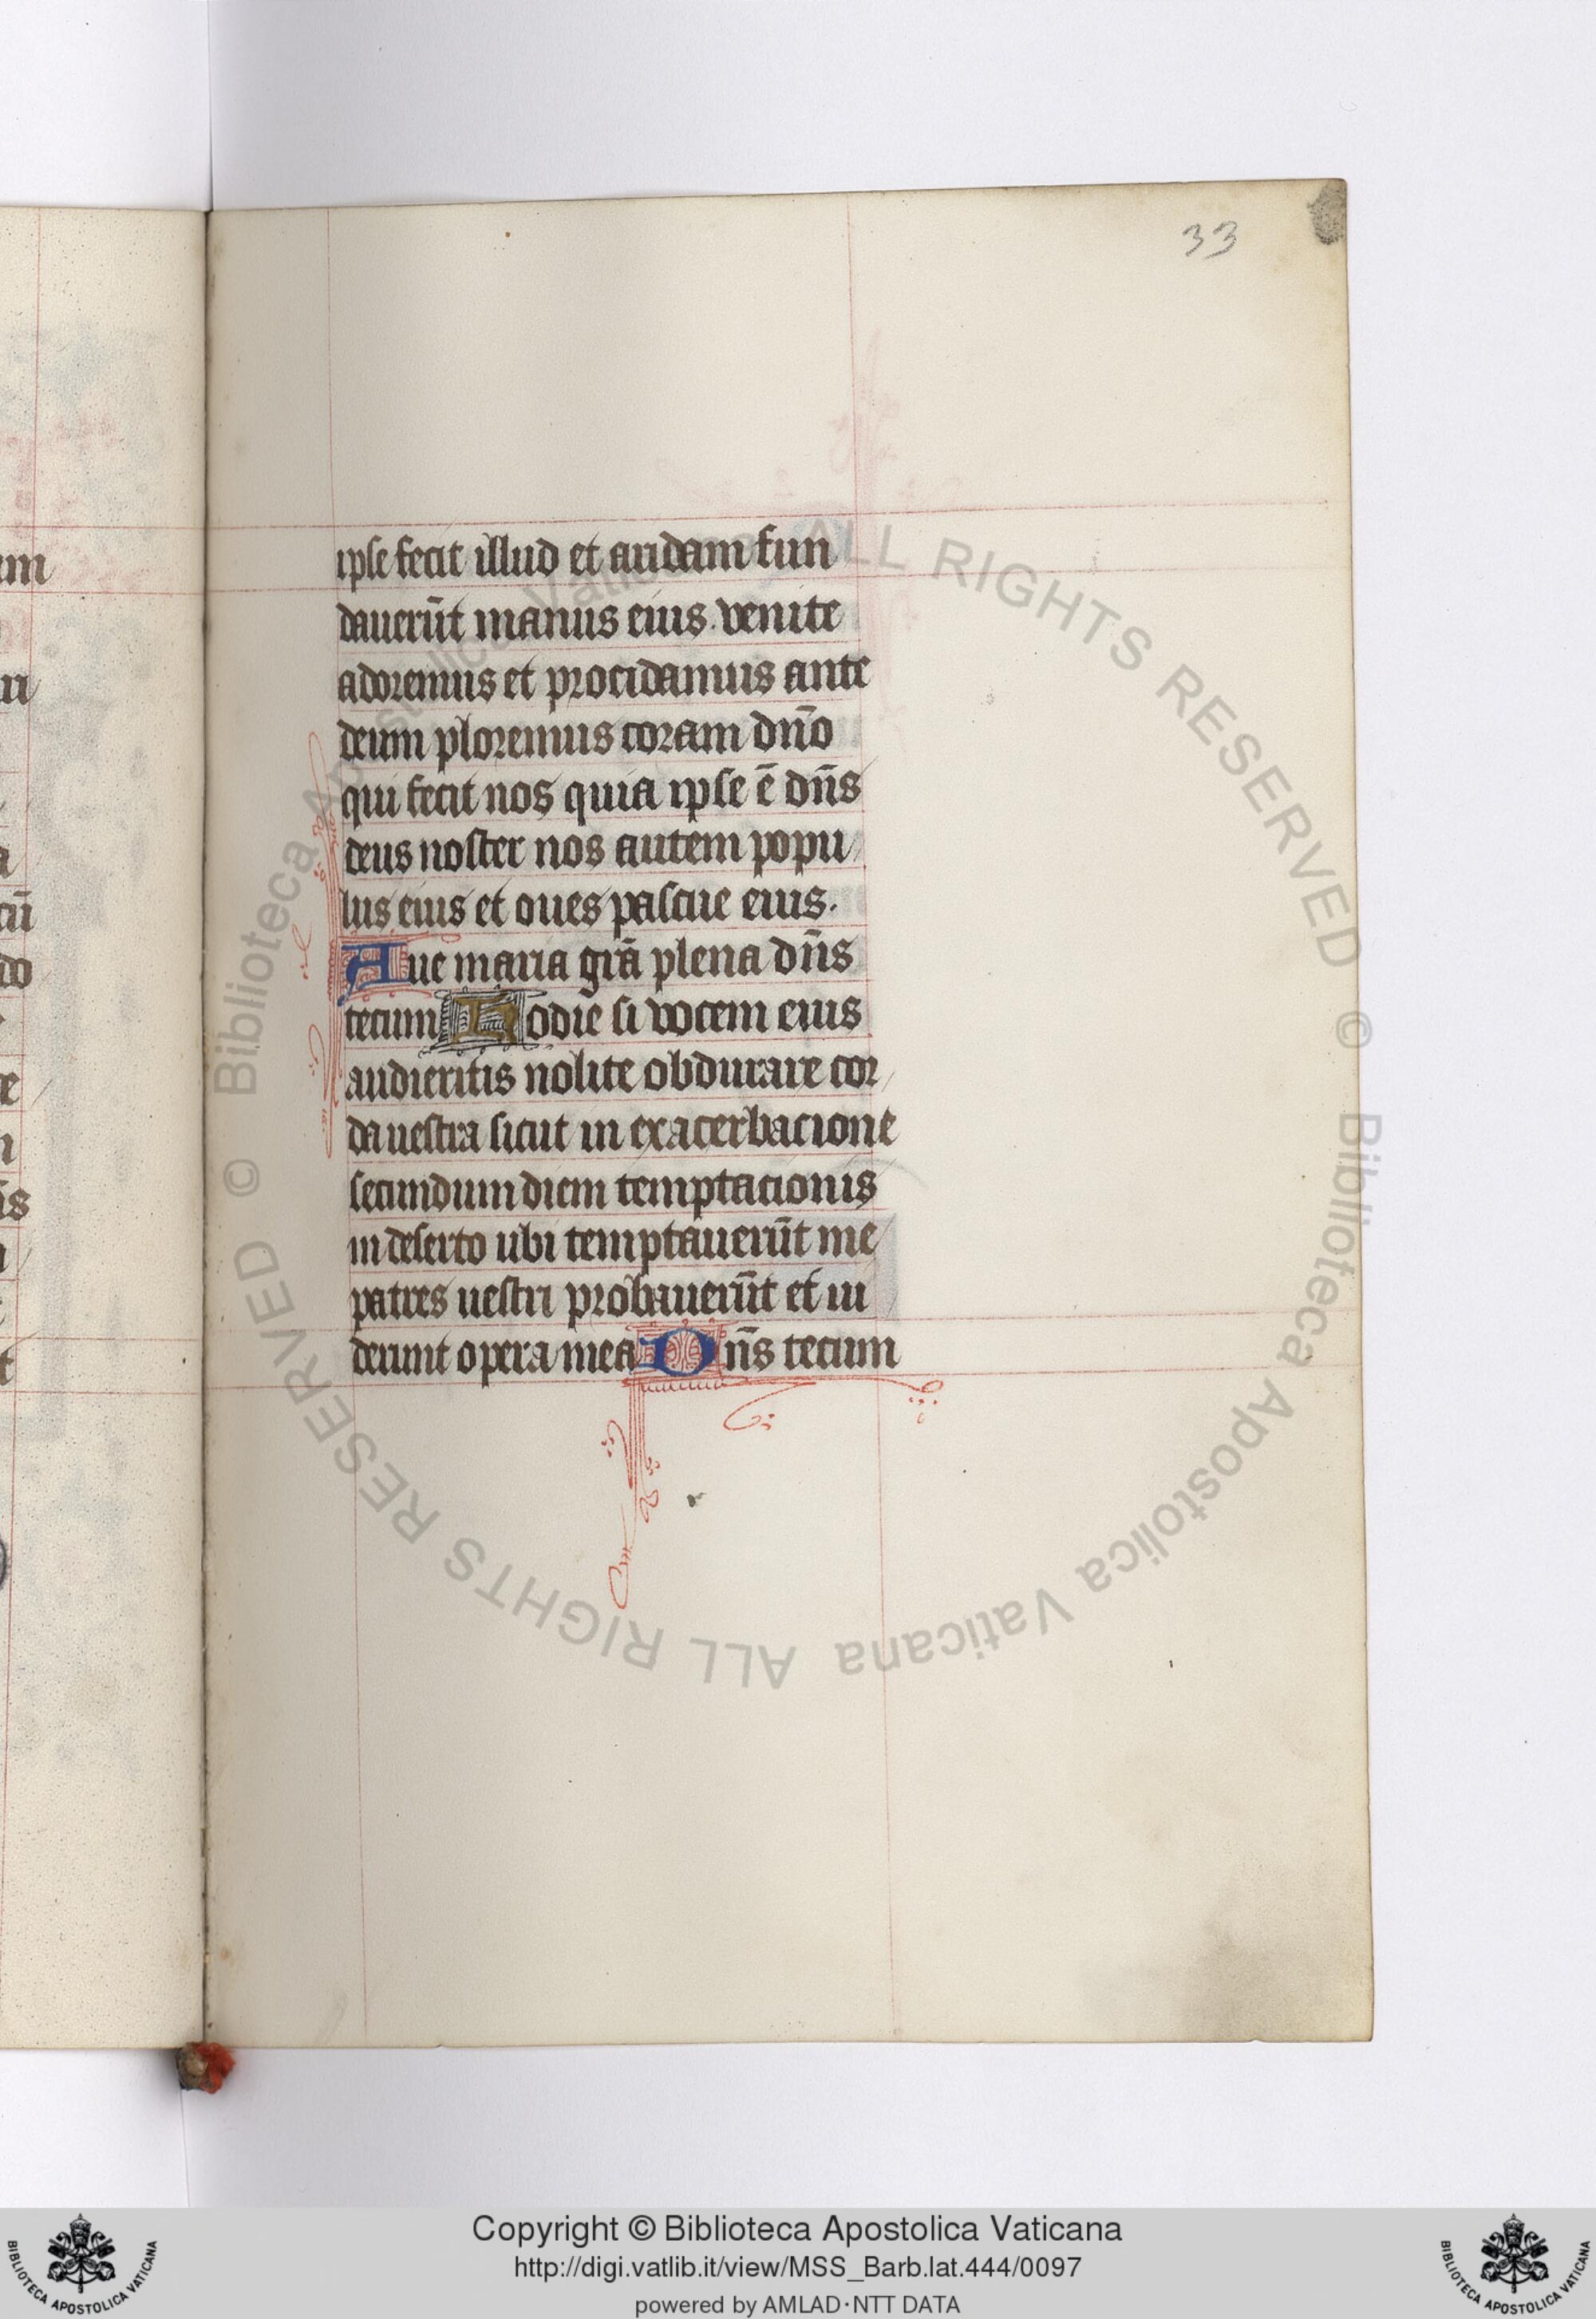 33
ipse fecit illud et aridam fun
dauerūt manus eius. venite
adoremus et procidamus ante
deum ploremus coram dn̄o
qui fecit nos quia ipse ē dn̄s
deus noster nos autem popu
lus eius et oues pascue eius.
Aue maria grā plena dn̄s
tecum Hodie si vocem eius
audieritis nolite obdurare cor
da uestra sicut in exacerbacione
secundum diem temptacionis
in deserto ubi temptauerūt me
patres uestri probauerūt et ui
derunt opera mea Dn̄s tecum
© Biblioteca Apostolica Vaticana ALL RIGHTS RESERVED
© Biblioteca Apostolica Vaticana ALL RIGHTS RESERVED
Copyright © Biblioteca Apostolica Vaticana
http://digi.vatlib.it/view/MSS_Barb.lat.444/0097
powered by AMLAD·NTT DATA
BIBLIOTECA APOSTOLICA VATICANA
BIBLIOTECA APOSTOLICA VATICANA